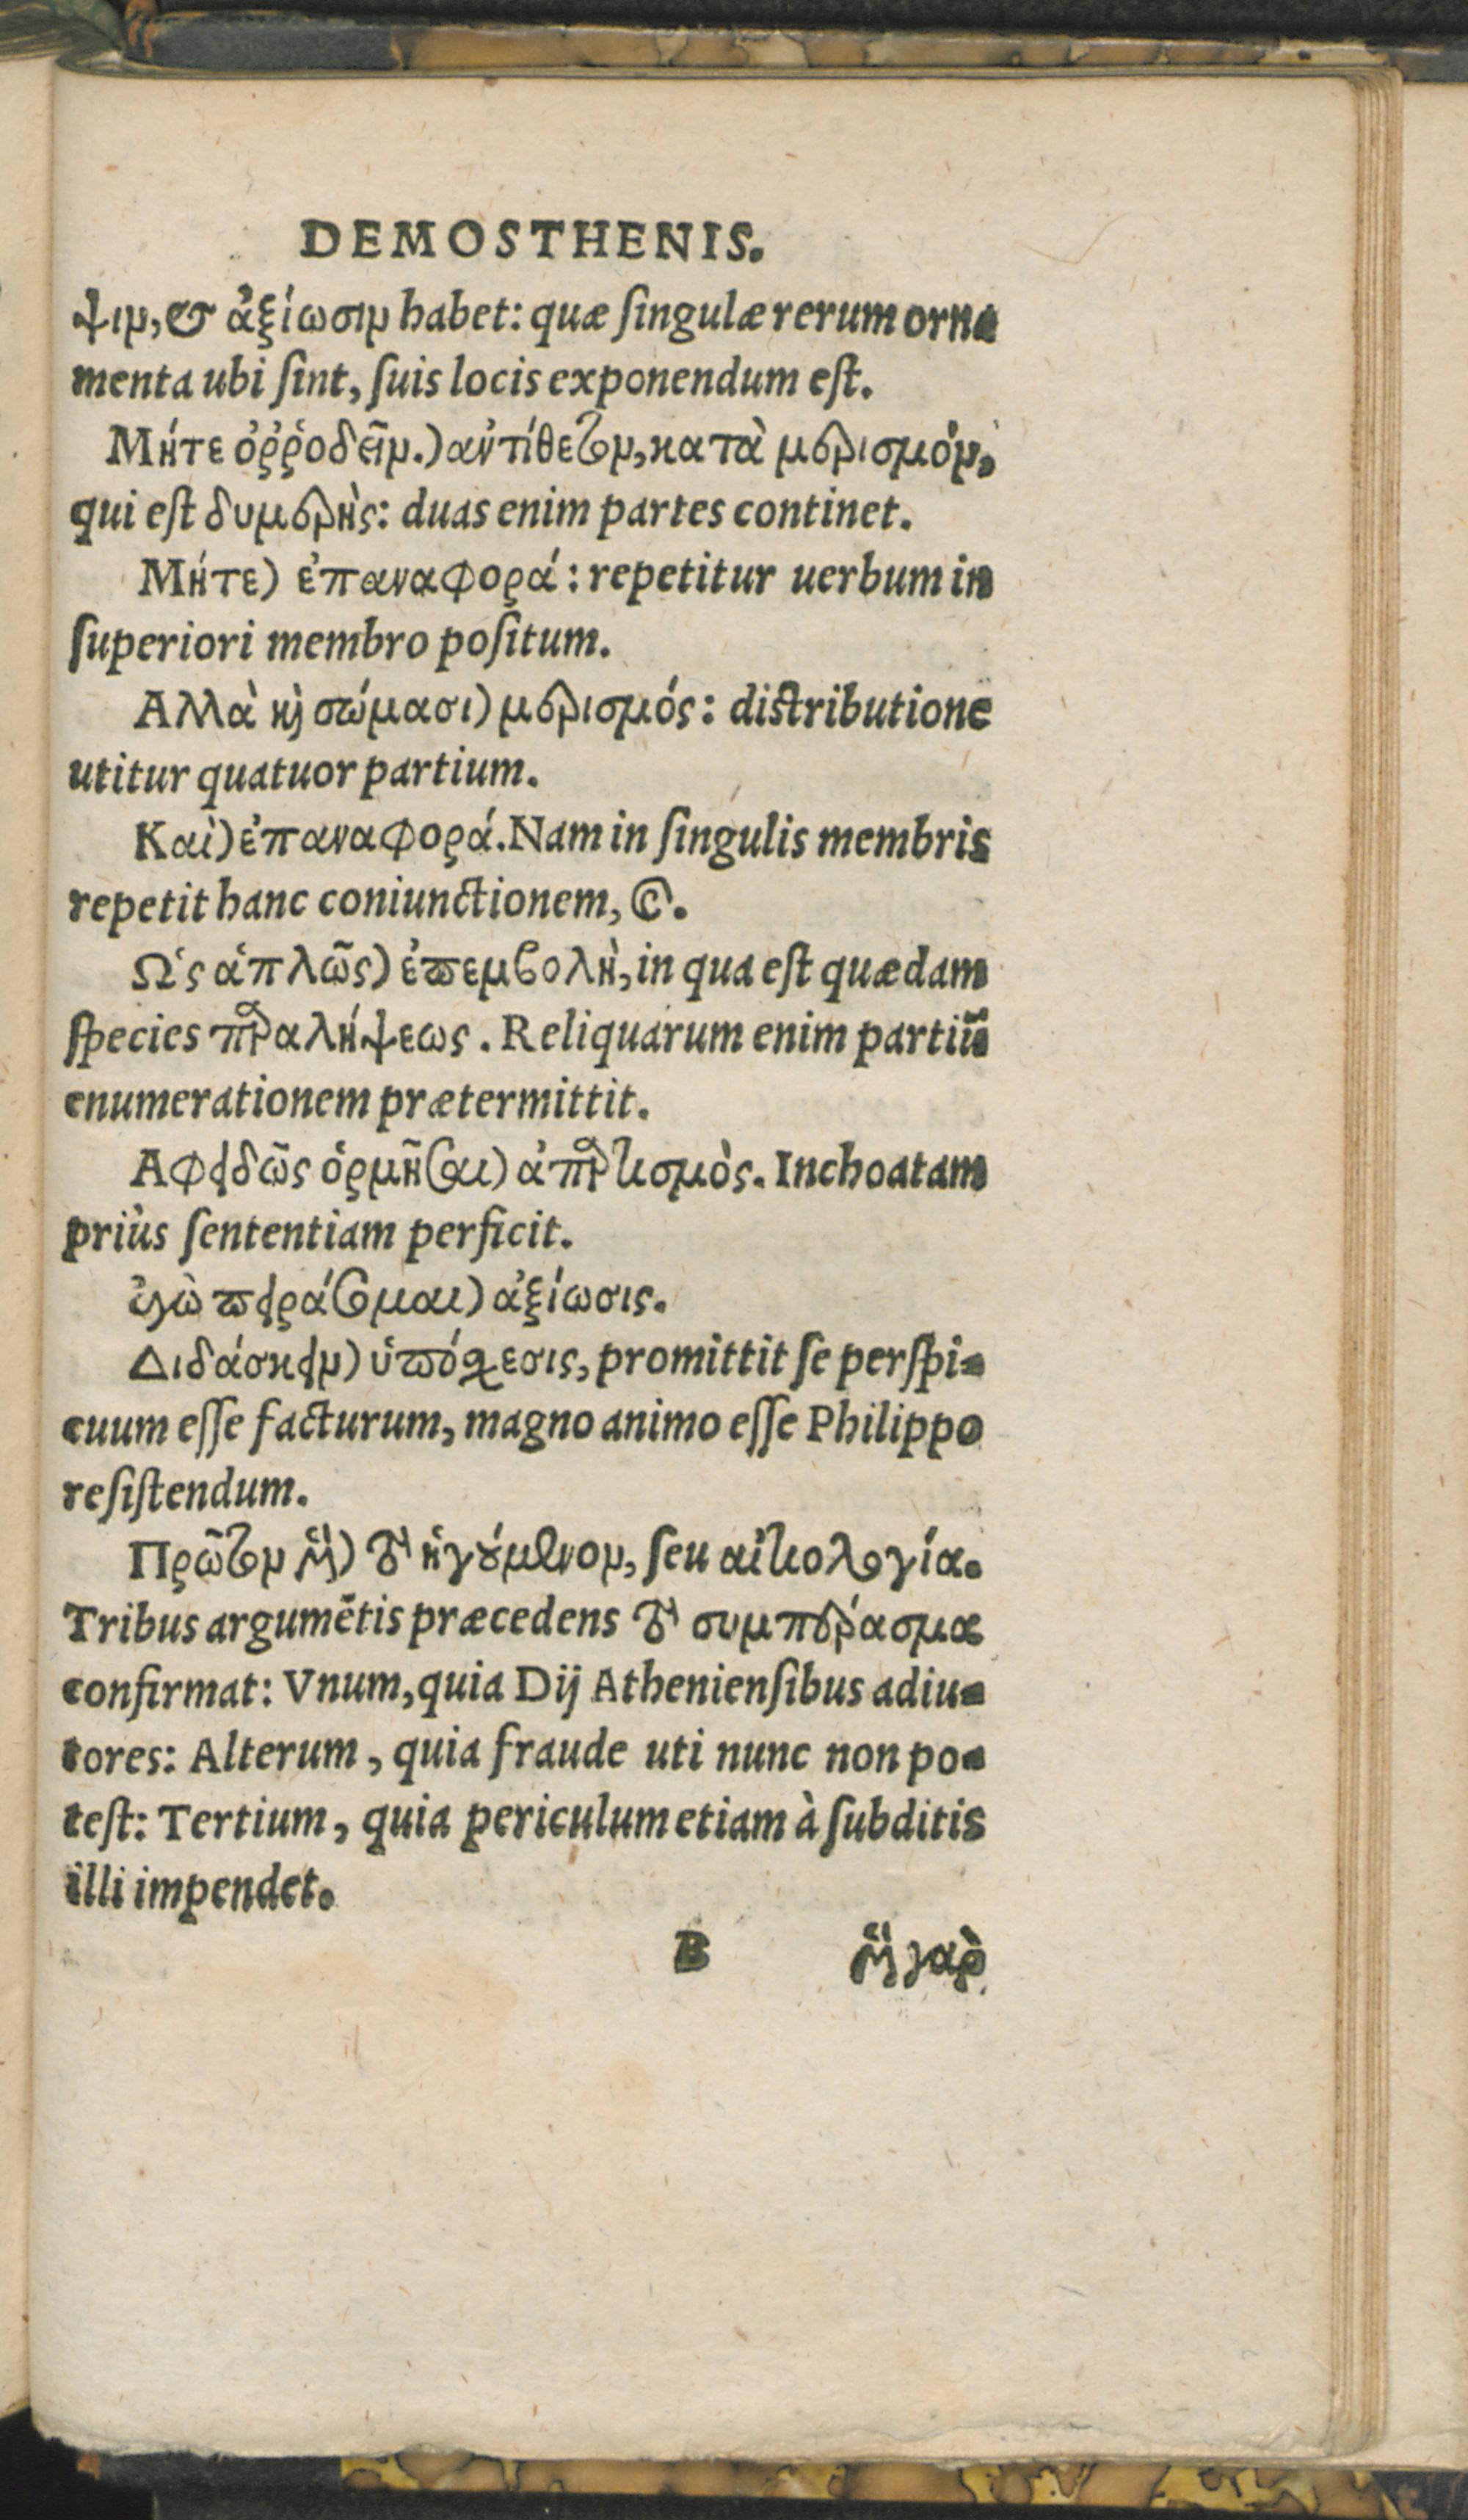 DEMOSTHENIS.
ψιν, & ἀξίωσιν habet: quæ ſingulæ rerum orna
menta ubi ſint, ſuis locis exponendum eſt.
Μήτε ὀῤῥοδεῖν.) ἀντίθετον, κατὰ μερισμόν,
qui eſt διμερὴς: duas enim partes continet.
Μήτε) ἐπαναφορά: repetitur uerbum in
ſuperiori membro poſitum.
Αλλὰ καὶ σώμασι) μερισμός: diſtributione
utitur quatuor partium.
Καὶ) ἐπαναφορά. Nam in ſingulis membris
repetit hanc coniunctionem, &.
Ως ἁπλῶς) ἐπεμβολὴ, in qua eſt quædam
ſpecies παραλήψεως. Reliquarum enim partiū
enumerationem prætermittit.
Αφειδῶς ὁρμῆσαι) ἀπαρτισμὸς. Inchoatam
priùs ſententiam perficit.
ἐγὼ πειράσομαι) ἀξίωσις.
Διδάσκειν) ὑπόσχεσις, promittit ſe perſpi-
cuum eſſe facturum, magno animo eſſe Philippo
reſiſtendum.
Πρῶτον μὲν) τὸ ἡγούμενον, ſeu αἰτιολογία.
Tribus argumētis præcedens τὸ συμπέρασμα
confirmat: Vnum, quia Dij Athenienſibus adiu-
tores: Alterum, quia fraude uti nunc non po-
teſt: Tertium, quia periculum etiam à ſubditis
illi impendet.
B μὲν γὰρ